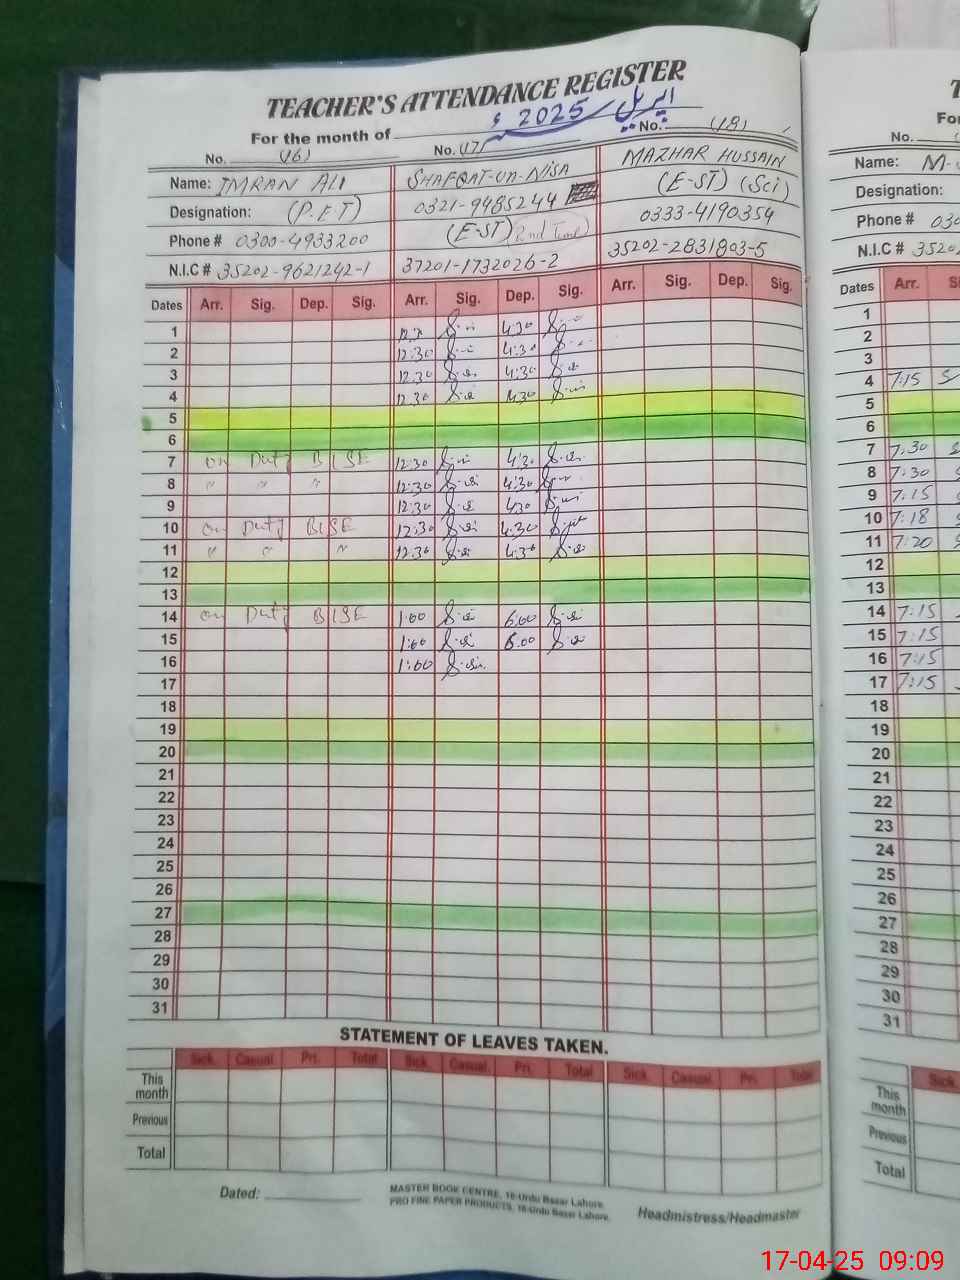 TEACHER'S ATTENDANCE REGISTER
For the month of اپریل 2025ء
No. (16) No. (17) No. (18)
Name: IMRAN ALI SHAFQAT-UN-NISA MAZHAR HUSSAIN
Designation: (P.E.T) 0321-9485244 (E-ST) (Sci)
Phone # 0300-4933200 (E-ST) (2nd Time) 0333-4190354
N.I.C # 35202-9621242-1 37201-1732026-2 35202-2831803-5
Dates Arr. Sig. Dep. Sig. Arr. Sig. Dep. Sig. Arr. Sig. Dep. Sig.
1 4:30
2 12:30 4:30
3 12:30 4:30
4 12:30 4:30
5
6
7 on Duty BISE 12:30 4:30
8 " " " 12:30 4:30
9 12:30 4:30
10 on Duty BISE 12:30 4:30
11 " " " 12:30 4:30
12
13
14 on Duty BISE 1:00 6:00
15 1:00 6:00
16 1:00
17
18
19
20
21
22
23
24
25
26
27
28
29
30
31
STATEMENT OF LEAVES TAKEN.
Sick. Casual. Pri. Total Sick. Casual. Pri. Total Sick. Casual. Pri. Total
This month
Previous
Total
Dated:
MASTER BOOK CENTRE, 16-Urdu Bazar Lahore.
PRO FINE PAPER PRODUCTS, 16-Urdu Bazar Lahore.
Headmistress/Headmaster
No.
Name: M-
Designation:
Phone # 030
N.I.C # 3520
Dates Arr.
1
2
3
4 7:15
5
6
7 7:30
8 7:30
9 7:15
10 7:18
11 7:20
12
13
14 7:15
15 7:15
16 7:15
17 7:15
18
19
20
21
22
23
24
25
26
27
28
29
30
31
Sick.
This month
Previous
Total
17-04-25 09:09